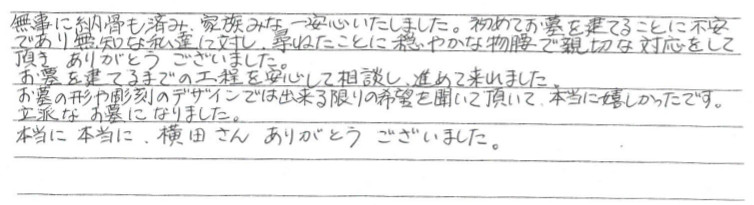 無事に納骨も済み、家族みな一安心いたしました。初めてお墓を建てることに不安
であり無知な私達に対し、尋ねたことに穏やかな物腰で親切な対応をして
頂き ありがとう ございました。
お墓を建てるまでの工程を安心して相談し、進めて来れました。
お墓の形や彫刻のデザインでは出来る限りの希望を聞いて頂いて、本当に嬉しかったです。
立派な お墓に なりました。
本当に 本当に、横田さん ありがとう ございました。